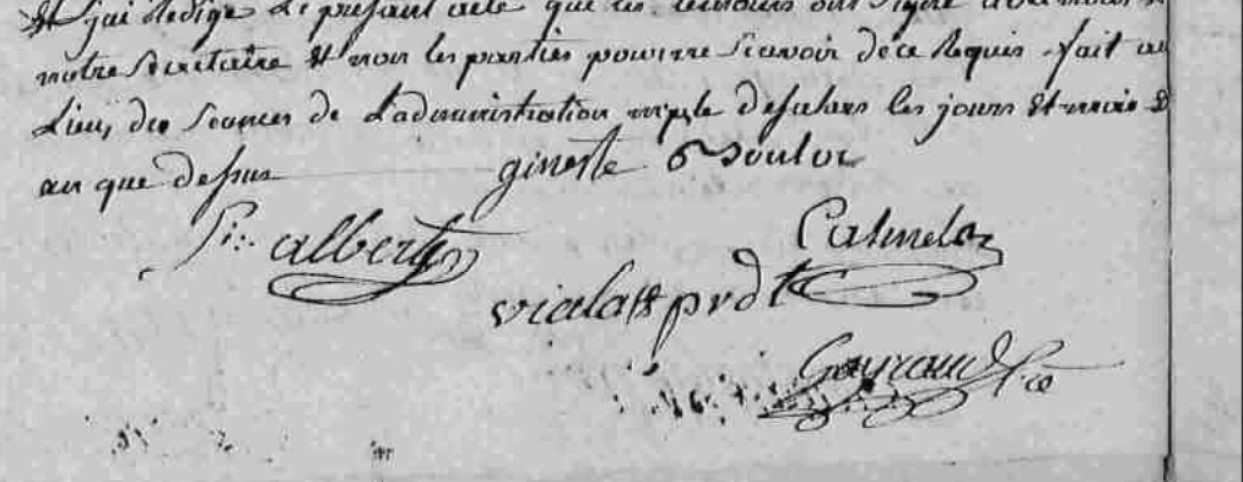 Et j'ai Redigé Le present acte que les temoins ont signé avec nous
notre secretaire Et non les parties pour ne scavoir de ce Requis. fait au
Lieu des seances de L'administration mple de salars les jours Et mois &
an que dessus
gineste Soulie
Pre. albert
Calmels
viala prdt
Gayraud sre